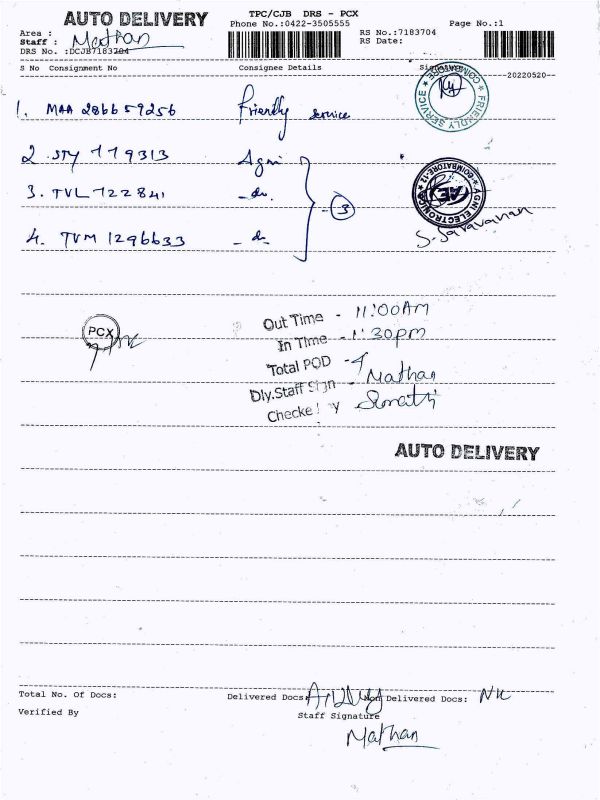 AUTO DELIVERY
TPC/CJB DRS - PCX
Phone No.:0422-3505555
Page No.:1
Area :
Staff : Mathan
RS No.:7183704
RS Date:
DRS No. :DCJB7183704
S No Consignment No Consignee Details
20220520
1. MAA 286659256 Friendly service
FRIENDLY SERVICE COIMBATORE
2. STY 779313 Agni
3. TVL 722841 - do. - 3
AGNI ELECTRONICS COIMBATORE-12
AE
4. TVM 1296633 - do
S. Saravanan
PCX
Out Time - 11:00AM
In Time - 1:30pm
Total POD - 4
Dly.Staff Sign - Mathan
Checke y Sumathi
AUTO DELIVERY
Total No. Of Docs: Delivered Docs: Non Delivered Docs: NIL
Verified By Staff Signature
Mathan